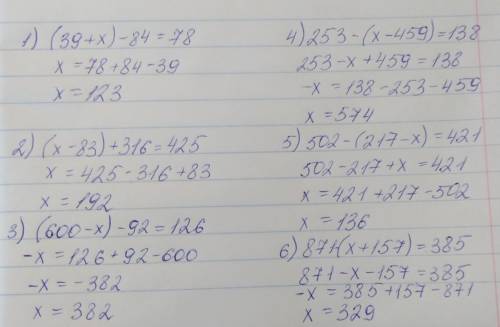 1) (39+x)-84=78
x=78+84-39
x=123
2) (x-83)+316=425
x=425-316+83
x=192
3) (600-x)-92=126
-x=126+92-600
-x=-382
x=382
4) 253-(x-459)=138
253-x+459=138
-x=138-253-459
x=574
5) 502-(217-x)=421
502-217+x=421
x=421+217-502
x=136
6) 871-(x+157)=385
871-x-157=385
-x=385+157-871
x=329